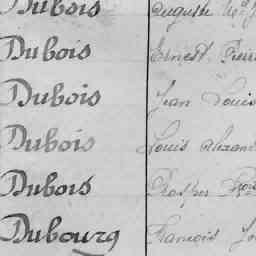 Dubois Auguste
Dubois Ernest Pierre
Dubois Jean Louis
Dubois Louis Alexan
Dubois Prosper
Dubourg François